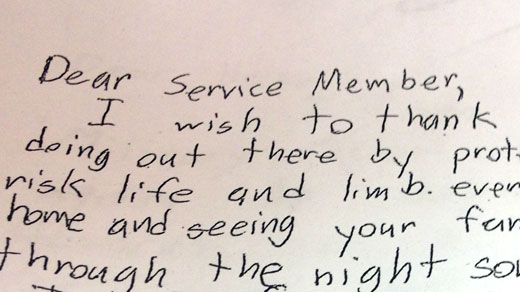 Dear Service Member,
I wish to thank
doing out there by prot
risk life and limb. even
home and seeing your fam
through the night